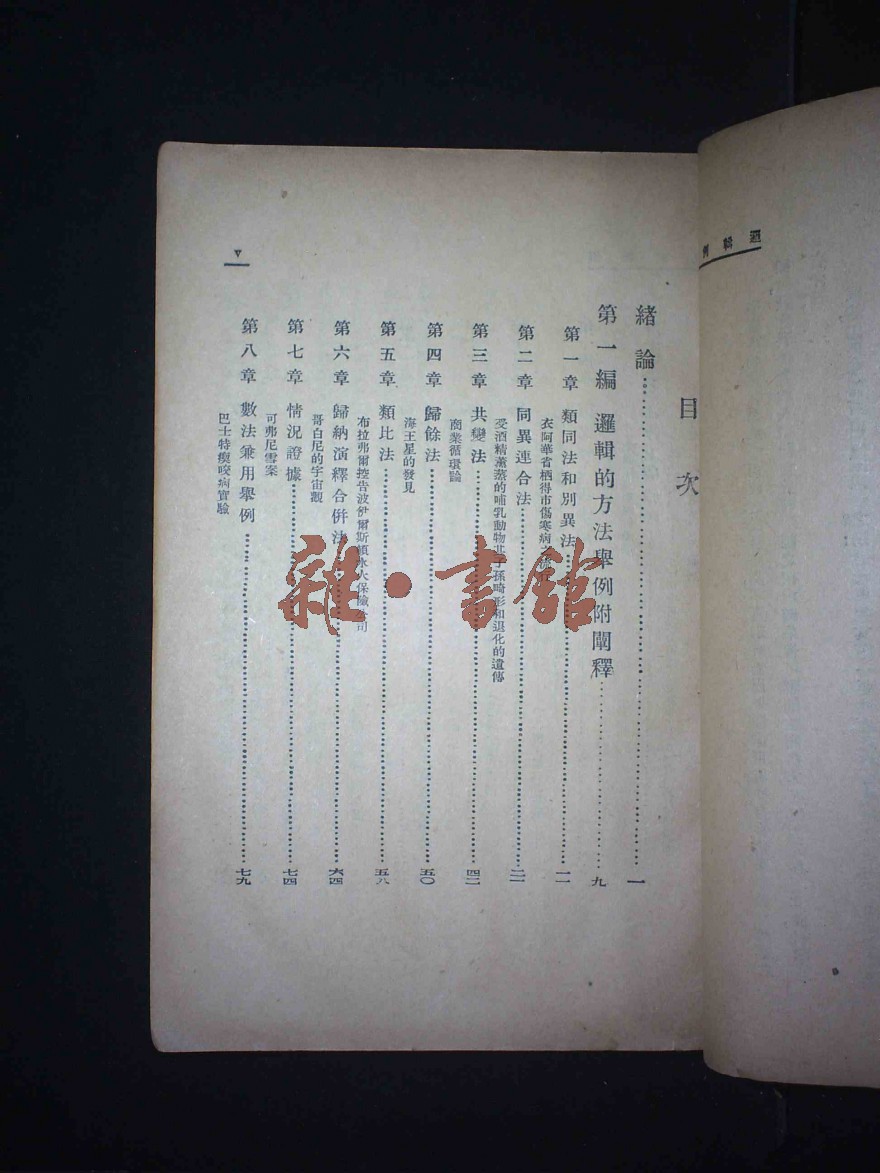 邏輯例
目次
緒論……一
第一編 邏輯的方法舉例附闡釋……九
第一章 類同法和別異法……一一
衣阿華省栖得市傷寒病之
第二章 同異連合法……二一
受酒精薰蒸的哺乳動物其子孫畸形和退化的遺傳
第三章 共變法……四二
商業循環論
第四章 歸餘法……五〇
海王星的發見
第五章 類比法……五八
布拉弗爾控告波伊爾斯頓水火保險公司
第六章 歸納演釋合併法……六四
哥白尼的宇宙觀
第七章 情況證據……七四
可弗尼雪案
第八章 數法兼用舉例……七九
巴士特瘈咬病實驗
V
雜·書館